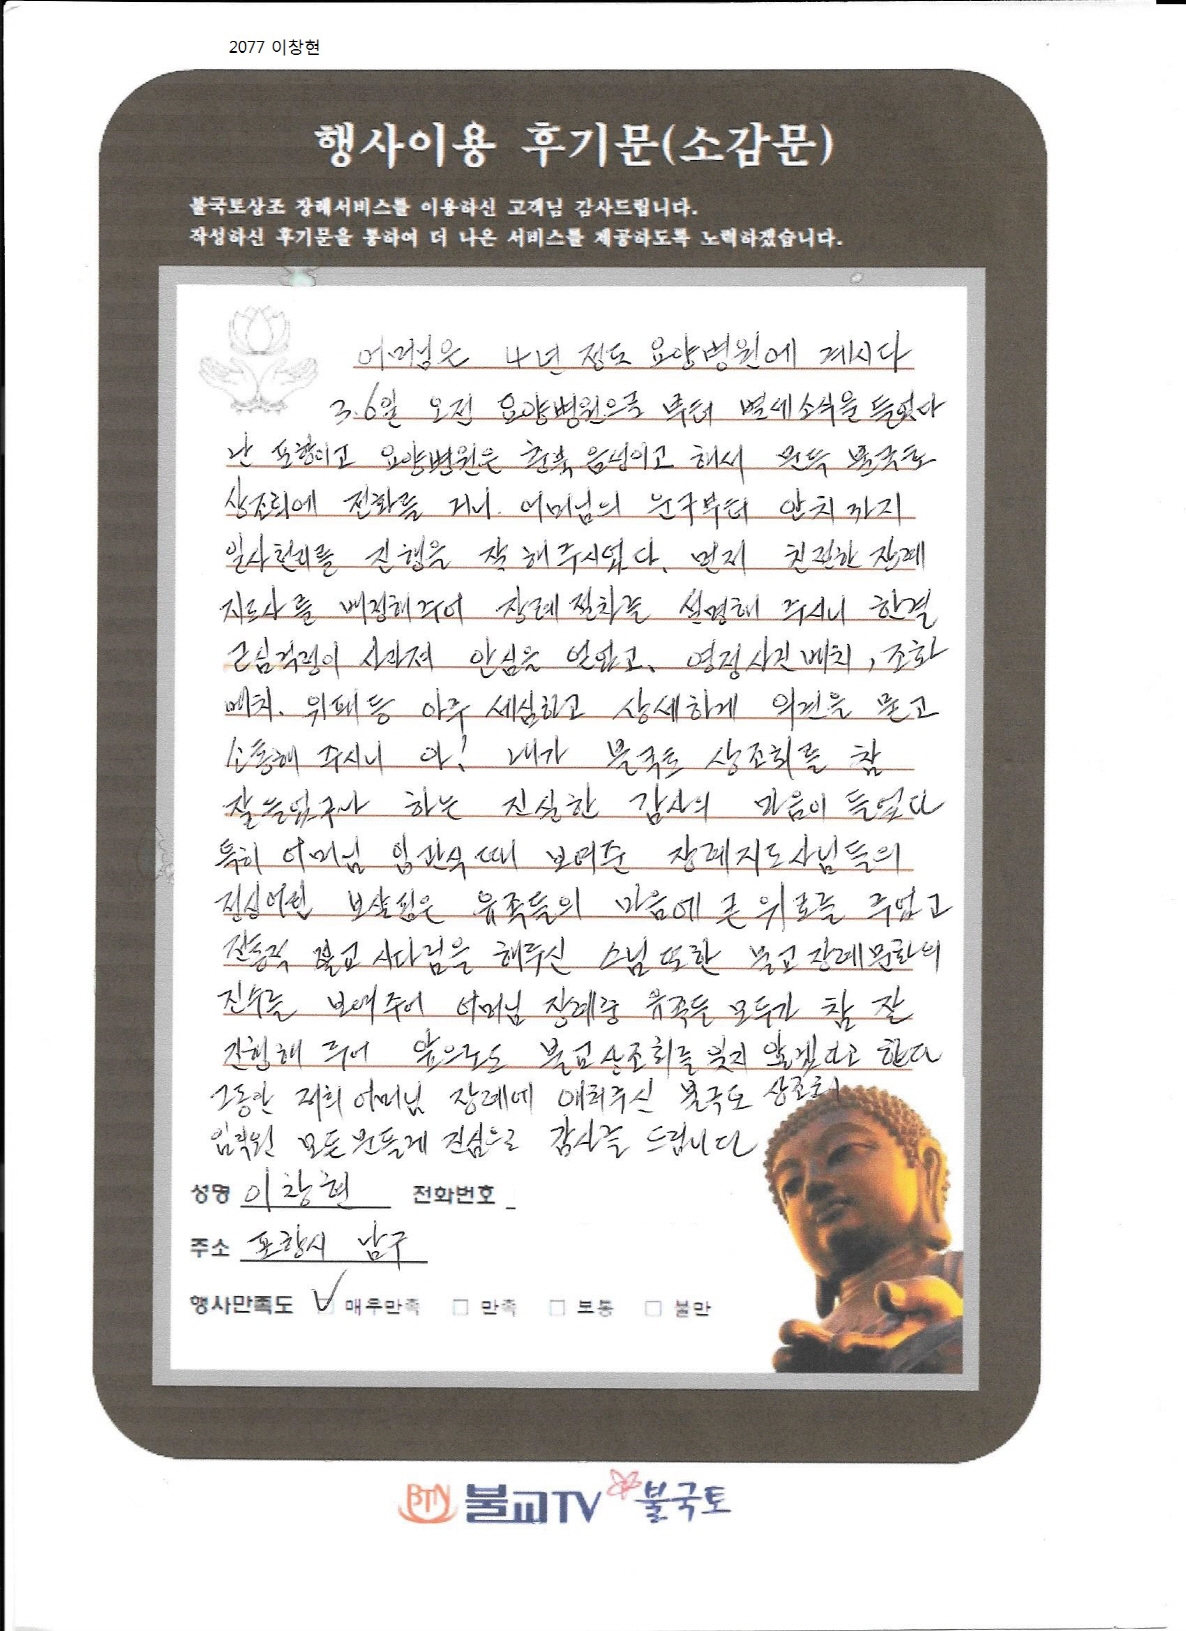 2077 이창현
행사이용 후기문(소감문)
불국토상조 장례서비스를 이용하신 고객님 감사드립니다.
작성하신 후기문을 통하여 더 나은 서비스를 제공하도록 노력하겠습니다.
어머님은 4년 정도 요양병원에 계시다
3.6일 오전 요양병원으로 부터 별세소식을 들었다
난 포항이고 요양병원은 충북 음성이고 해서 문득 불국토
상조회에 전화를 거니. 어머님의 운구부터 안치까지
일사천리를 진행을 착 해주시었다. 먼저 친절한 장례
지도사를 배정해주어 장례절차를 설명해 주시니 한결
근심걱정이 사라져 안심을 얻었고, 영정사진 배치, 조화
배치. 위패등 아주 세심하고 상세하게 의견을 묻고
소통해 주시니 아! 내가 불국토 상조회를 참
잘들었구나 하는 진실한 감사의 마음이 들었다
특히 어머님 입관식 때 보여준 장례지도사님들의
정성어린 보살핌은 유족들의 마음에 큰 위로를 주었고
전통적 불교 시다림을 해주신 스님 또한 불교장례문화의
진수를 보여주어 어머님 장례를 유족들 모두가 참 잘
진행해 주어 앞으로도 불교상조회를 잊지 않겠다고 한다
그동안 저희 어머님 장례에 애써주신 불국토 상조회
임직원 모든분들게 진심으로 감사를 드립니다
성명 이창현 전화번호
주소 포항시 남구
행사만족도 ☑ 매우만족 □ 만족 □ 보통 □ 불만
BTN 불교TV 불국토